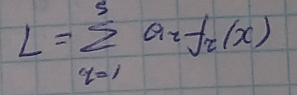 L = \sum_{r=1}^{s} a_r f_r(x)